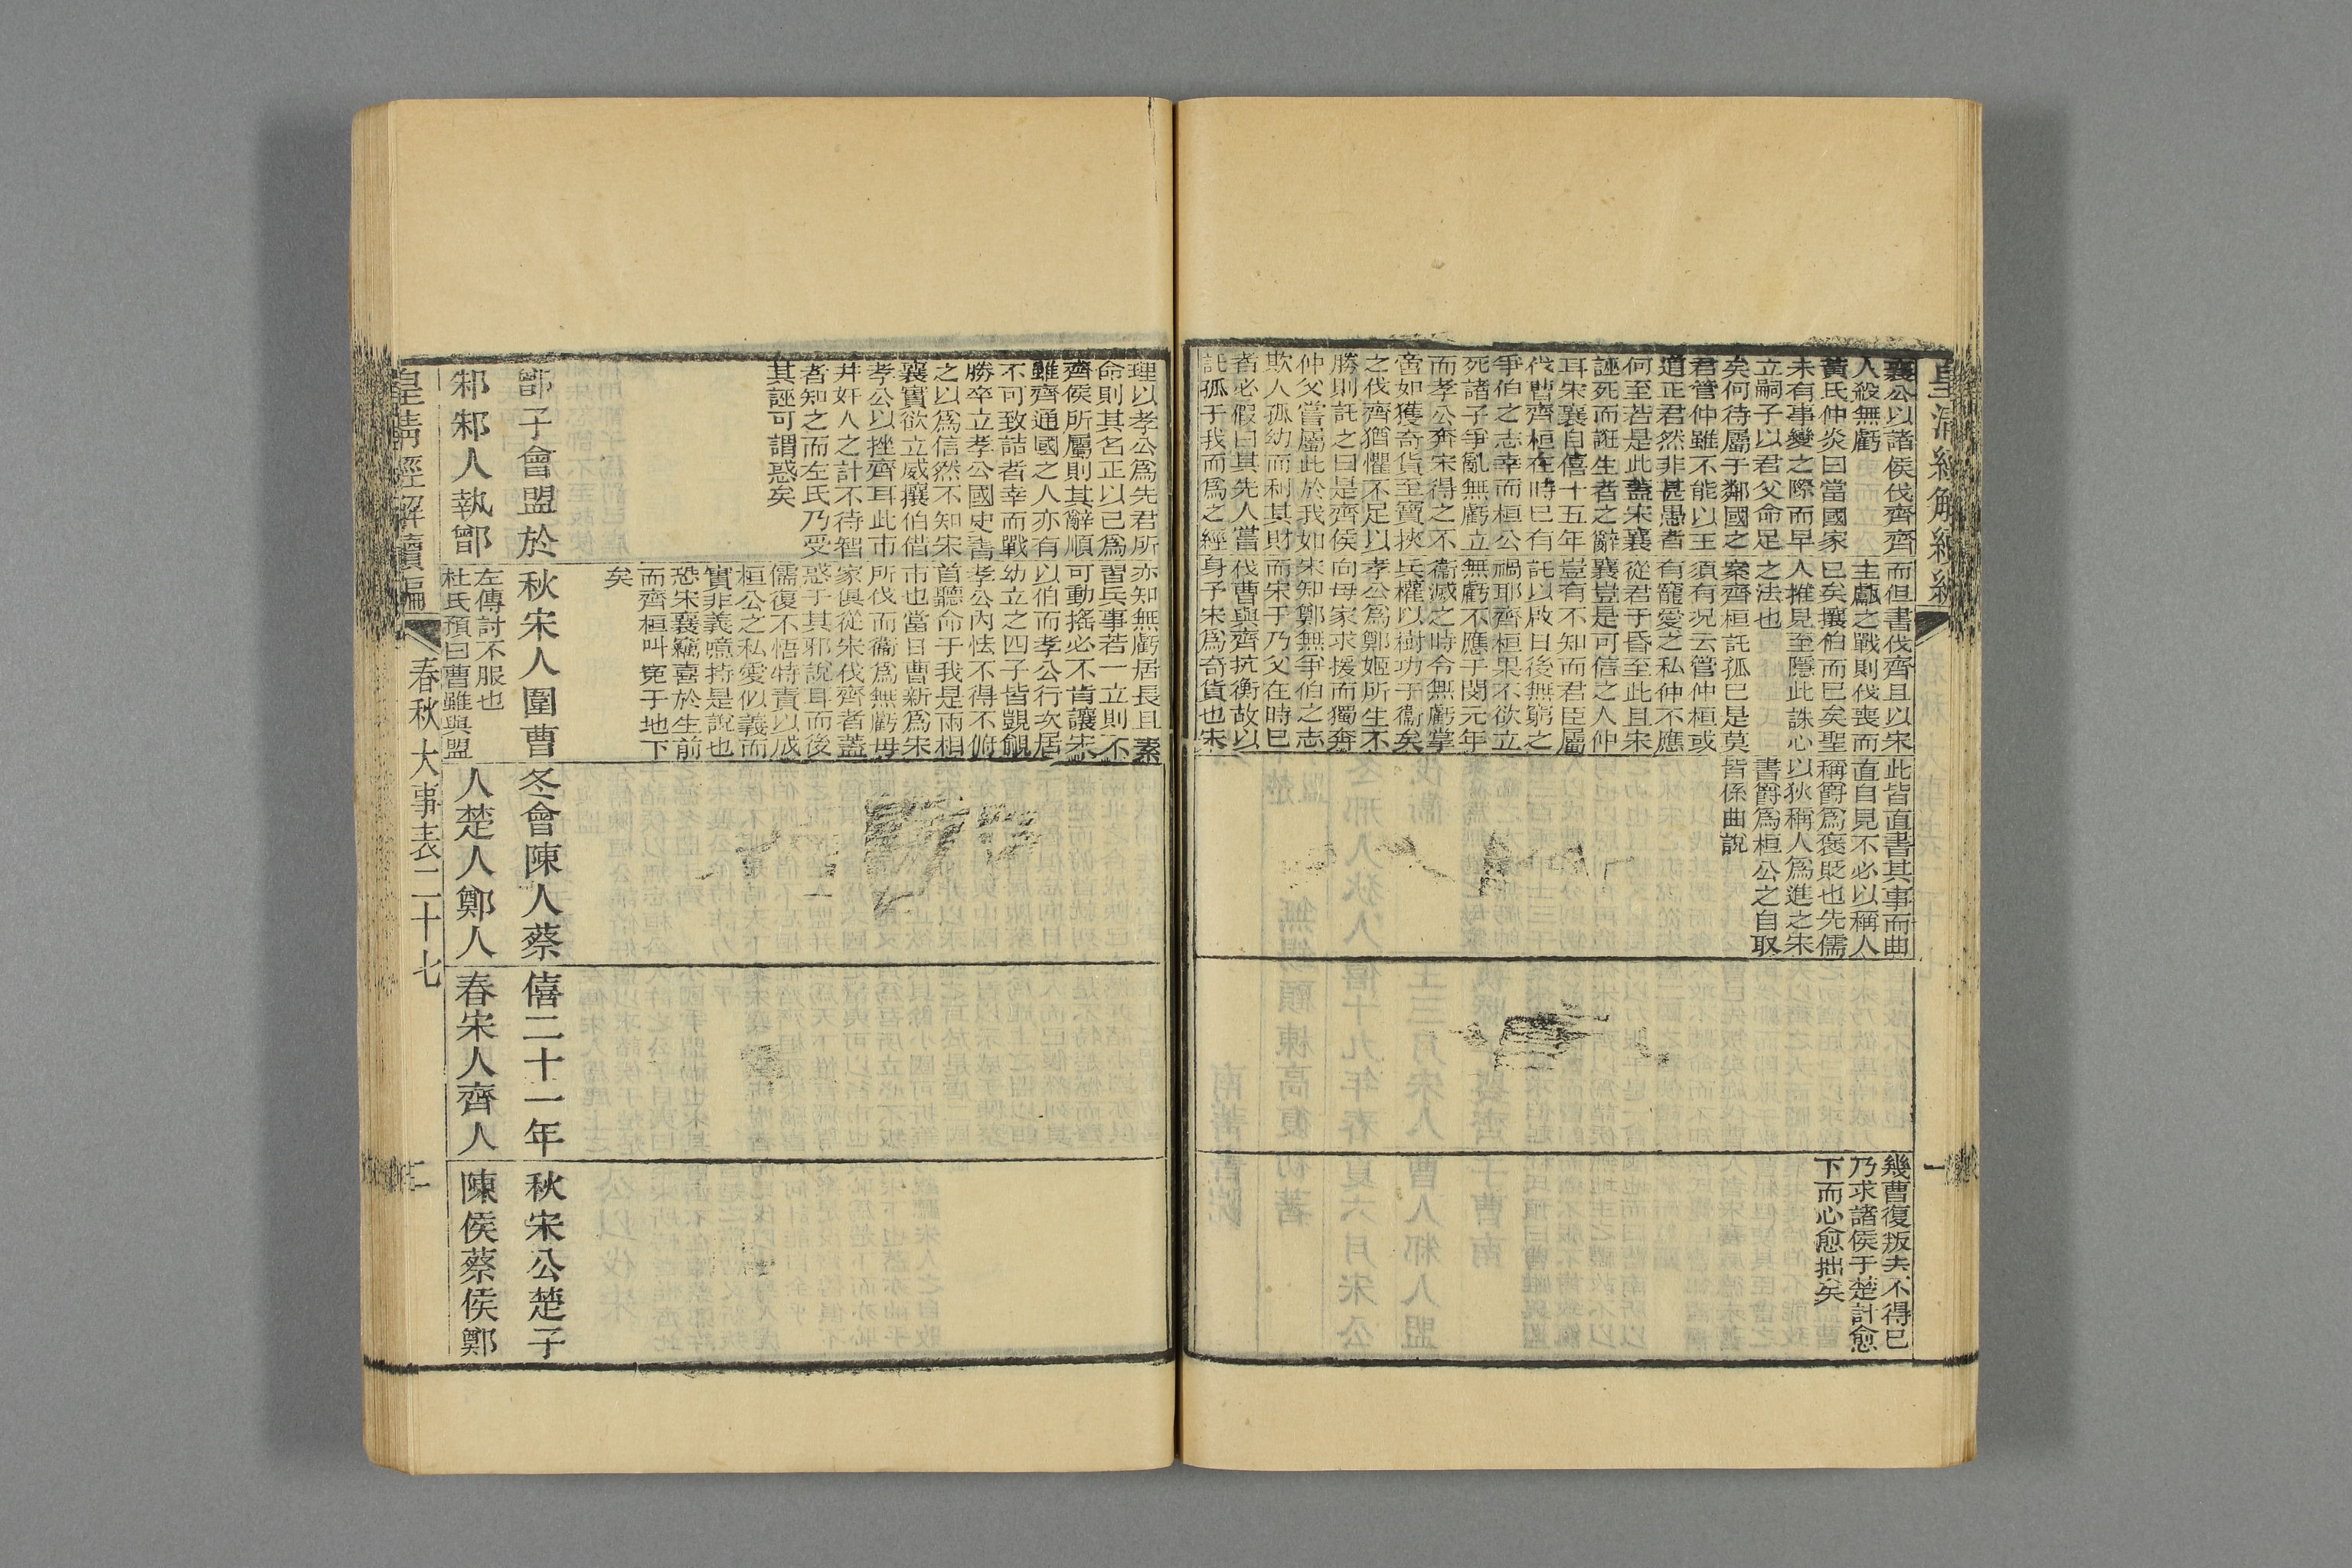 皇清經解續編
襄公以諸侯伐齊齊
人殺無虧
黃氏仲炎曰當國家
未有事變之際而早
立嗣子以君父命足
矣何待屬于鄰國之
君管仲雖不能以王
道正君然非甚愚者
何至若是此蓋宋襄
誣死而誑生者之辭
耳宋襄自僖十五年
伐曹齊桓在時已有
爭伯之志幸而桓公
死諸子爭亂無虧立
而孝公奔宋得之不
啻如獲奇貨至寶挾
之伐齊猶懼不足以
勝則託之曰是齊侯
仲父嘗屬此於我如
欺人孤幼而利其財
者必假曰其先人嘗
託孤于我而爲之經
而但書伐齊且以宋
主甗之戰則伐喪而
已矣攘伯而已矣聖
人推見至隱此誅心
之法也
案齊桓託孤已是莫
須有況云管仲桓或
有寵愛之私仲不應
從君于昏至此且宋
襄豈是可信之人仲
豈有不知而君臣屬
託以啟日後無窮之
禍耶齊桓果不欲立
無虧不應于閔元年
衞滅之時令無虧掌
兵權以樹功于衞矣
孝公爲鄭姬所生不
向母家求援而獨奔
宋知鄭無爭伯之志
而宋于乃父在時已
伐曹與齊抗衡故以
身予宋爲奇貨也宋
此皆直書其事而曲
直自見不必以稱人
稱爵爲褒貶也先儒
以狄稱人爲進之宋
書爵爲桓公之自取
皆係曲說
幾曹復叛夫不得已
乃求諸侯于楚計愈
下而心愈拙矣
理以孝公爲先君所
命則其名正以已爲
齊侯所屬則其辭順
雖齊通國之人亦有
不可致詰者幸而戰
勝卒立孝公國史書
之以爲信然不知宋
襄實欲立威攘伯借
孝公以挫齊耳此市
井奸人之計不待智
者知之而左氏乃受
其誣可謂惑矣
鄫子會盟於
邾邾人執鄫
亦知無虧居長且素
習兵事若一立則不
可動搖必不肯讓宋
以伯而孝公行次居
幼立之四子皆覬覦
孝公內怯不得不俯
首聽命于我是兩相
市也當日曹新爲宋
所伐而衞爲無虧母
家俱從宋伐齊者蓋
惑于其邪說耳而後
儒復不悟特責以成
桓公之私愛似義而
實非義噫持是說也
恐宋襄竊喜於生前
而齊桓叫寃于地下
矣
秋宋人圍曹
左傳討不服也
杜氏預曰曹雖與盟
冬會陳人蔡
人楚人鄭人
僖二十一年
春宋人齊人
秋宋公楚子
陳侯蔡侯鄭
皇清經解續編
春秋大事表二十七
二